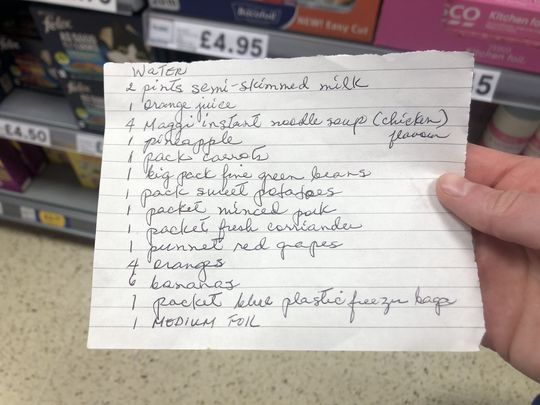 WATER
2 pints semi-skimmed milk
1 orange juice
4 Maggi instant noodle soup (chicken)
flavour
1 pineapple
1 pack carrots
1 big pack fine green beans
1 pack sweet potatoes
1 packet minced pork
1 packet fresh corriander
1 punnet red grapes
4 oranges
6 bananas
1 packet blue plastic freezer bags
1 MEDIUM FOIL
£4.95
Bacofoil
NEW! Easy Cut
CO
Kitchen fo
Kitchen foil
5
Felix
£4.50